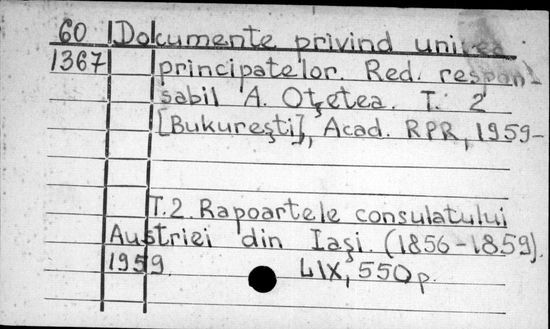 60 Dokumente privind unirea
1367 principatelor. Red. respon-
sabil A. Oţetea. T. 2
[Bukureşti], Acad. RPR, 1959-
T.2. Rapoartele consulatului
Austriei din Iaşi. (1856-1859).
1959. LIX, 550p.